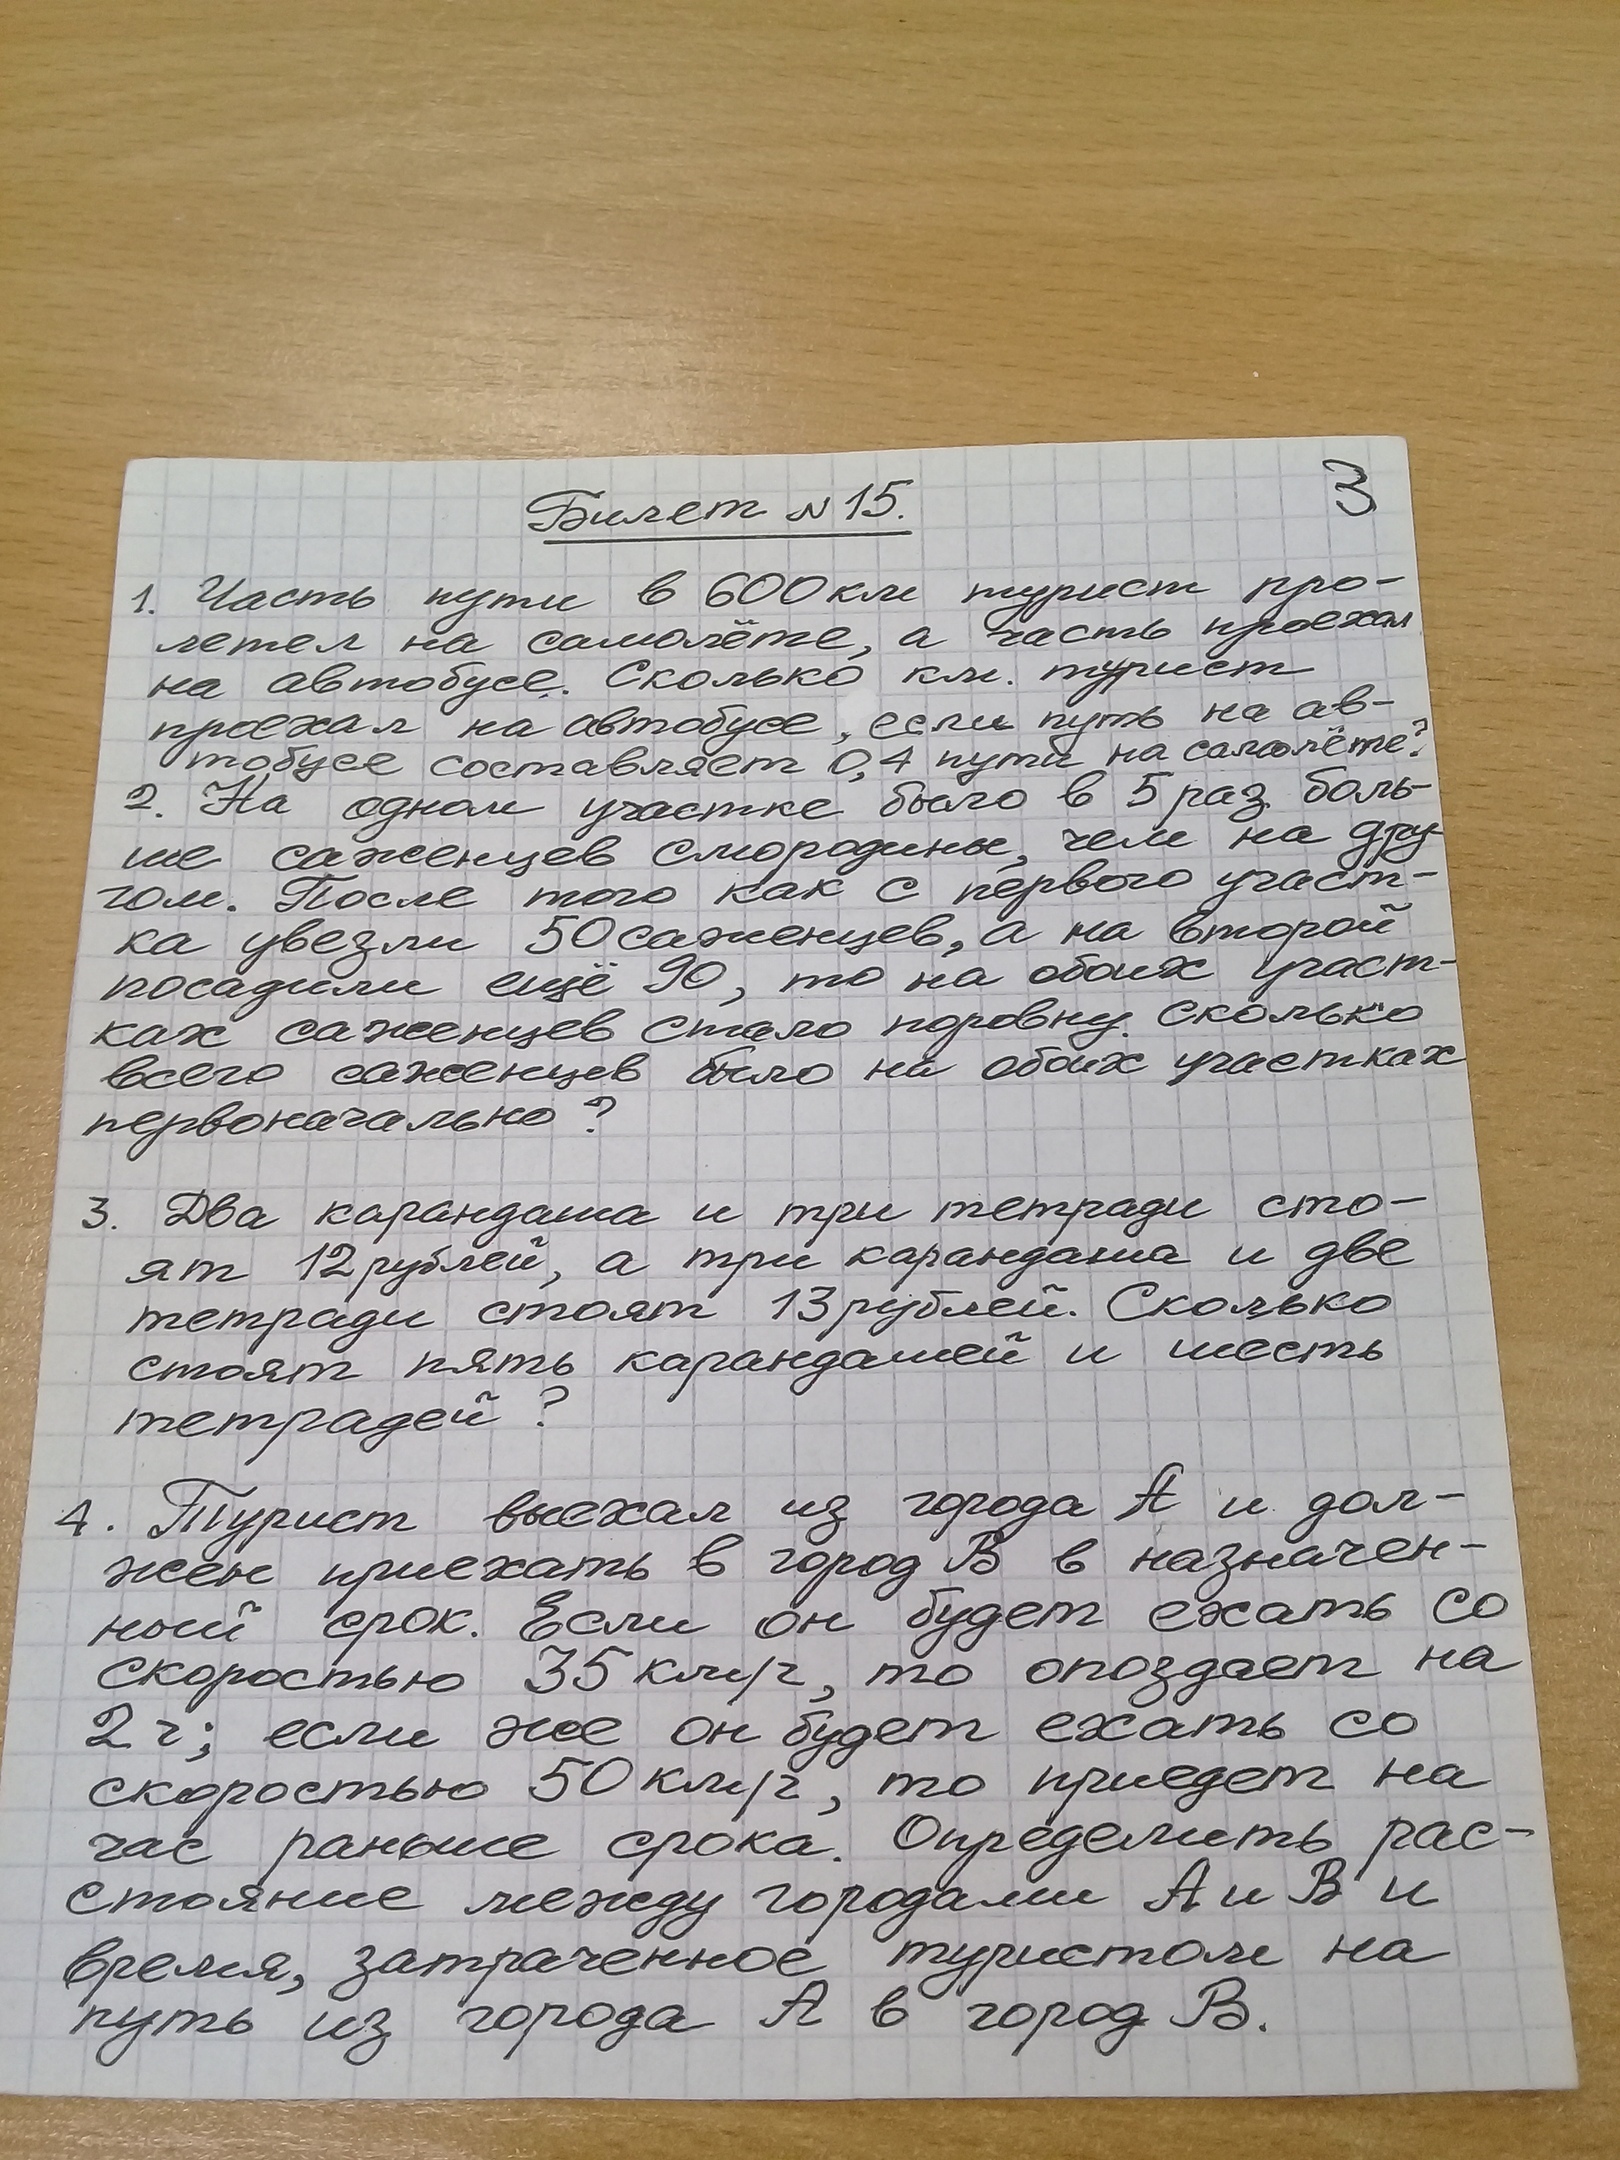 Билет №15.
3
1. Часть пути в 600 км турист про-
летел на самолёте, а часть проехал
на автобусе. Сколько км. турист
проехал на автобусе, если путь на ав-
тобусе составляет 0,4 пути на самолёте?
2. На одном участке было в 5 раз боль-
ше саженцев смородины, чем на дру-
гом. После того как с первого участ-
ка увезли 50 саженцев, а на второй
посадили ещё 90, то на обоих участ-
ках саженцев стало поровну. Сколько
всего саженцев было на обоих участках
первоначально?
3. Два карандаша и три тетради сто-
ят 12 рублей, а три карандаша и две
тетради стоят 13 рублей. Сколько
стоят пять карандашей и шесть
тетрадей?
4. Турист выехал из города А и дол-
жен приехать в город В в назначен-
ный срок. Если он будет ехать со
скоростью 35 км/ч, то опоздает на
2 ч; если же он будет ехать со
скоростью 50 км/ч, то приедет на
час раньше срока. Определить рас-
стояние между городами А и В и
время, затраченное туристом на
путь из города А в город В.